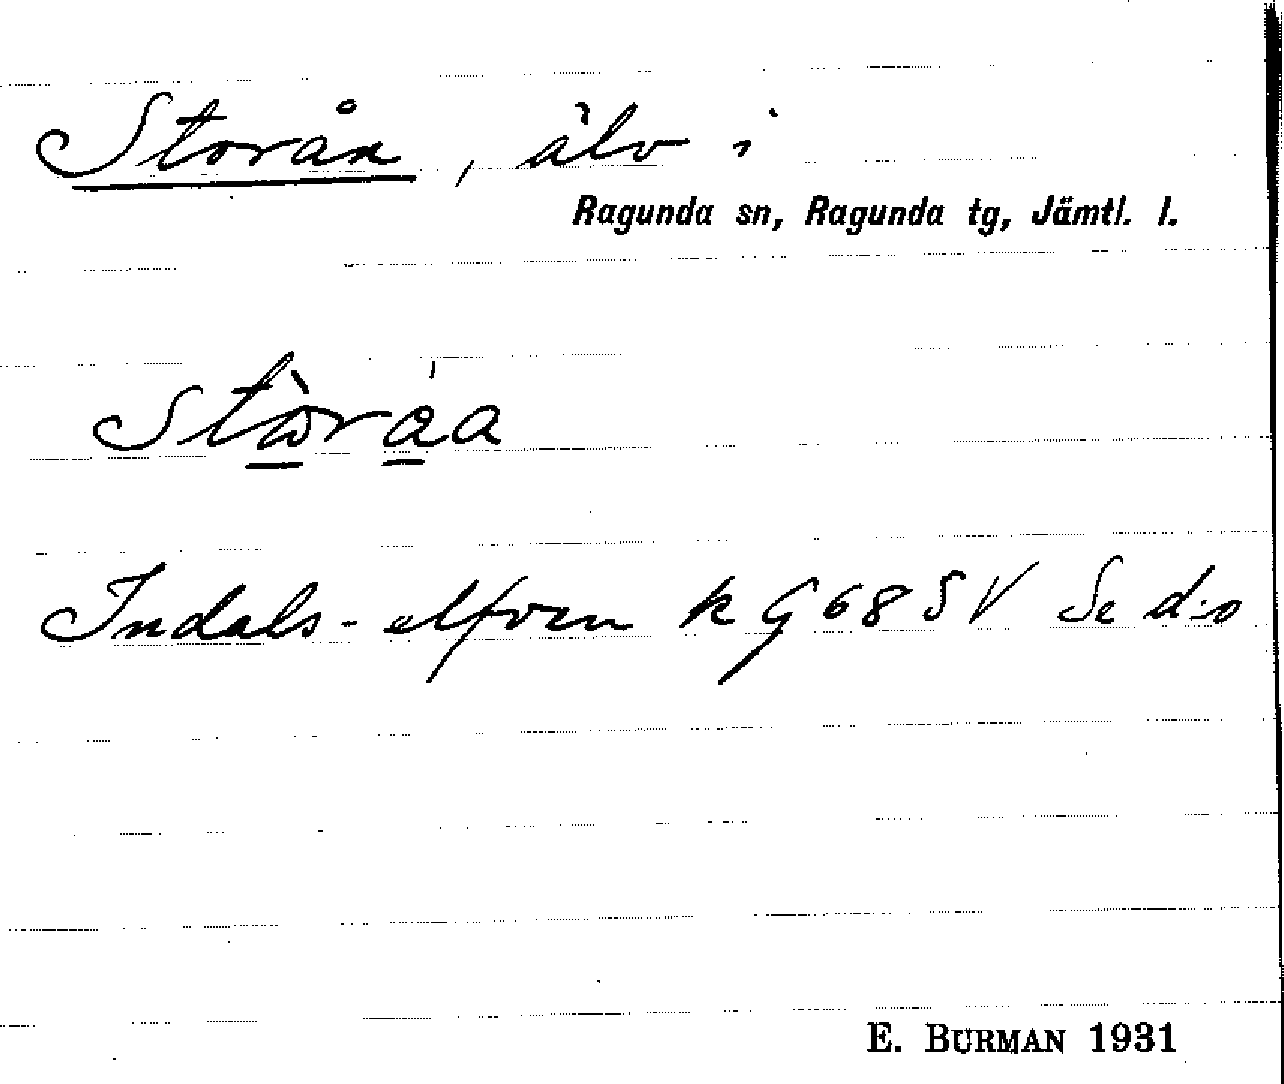 Storån, älv i
Ragunda sn, Ragunda tg, Jämtl. l.
Indals-elfven k G 68 SV Se d:o
E. BURMAN 1931